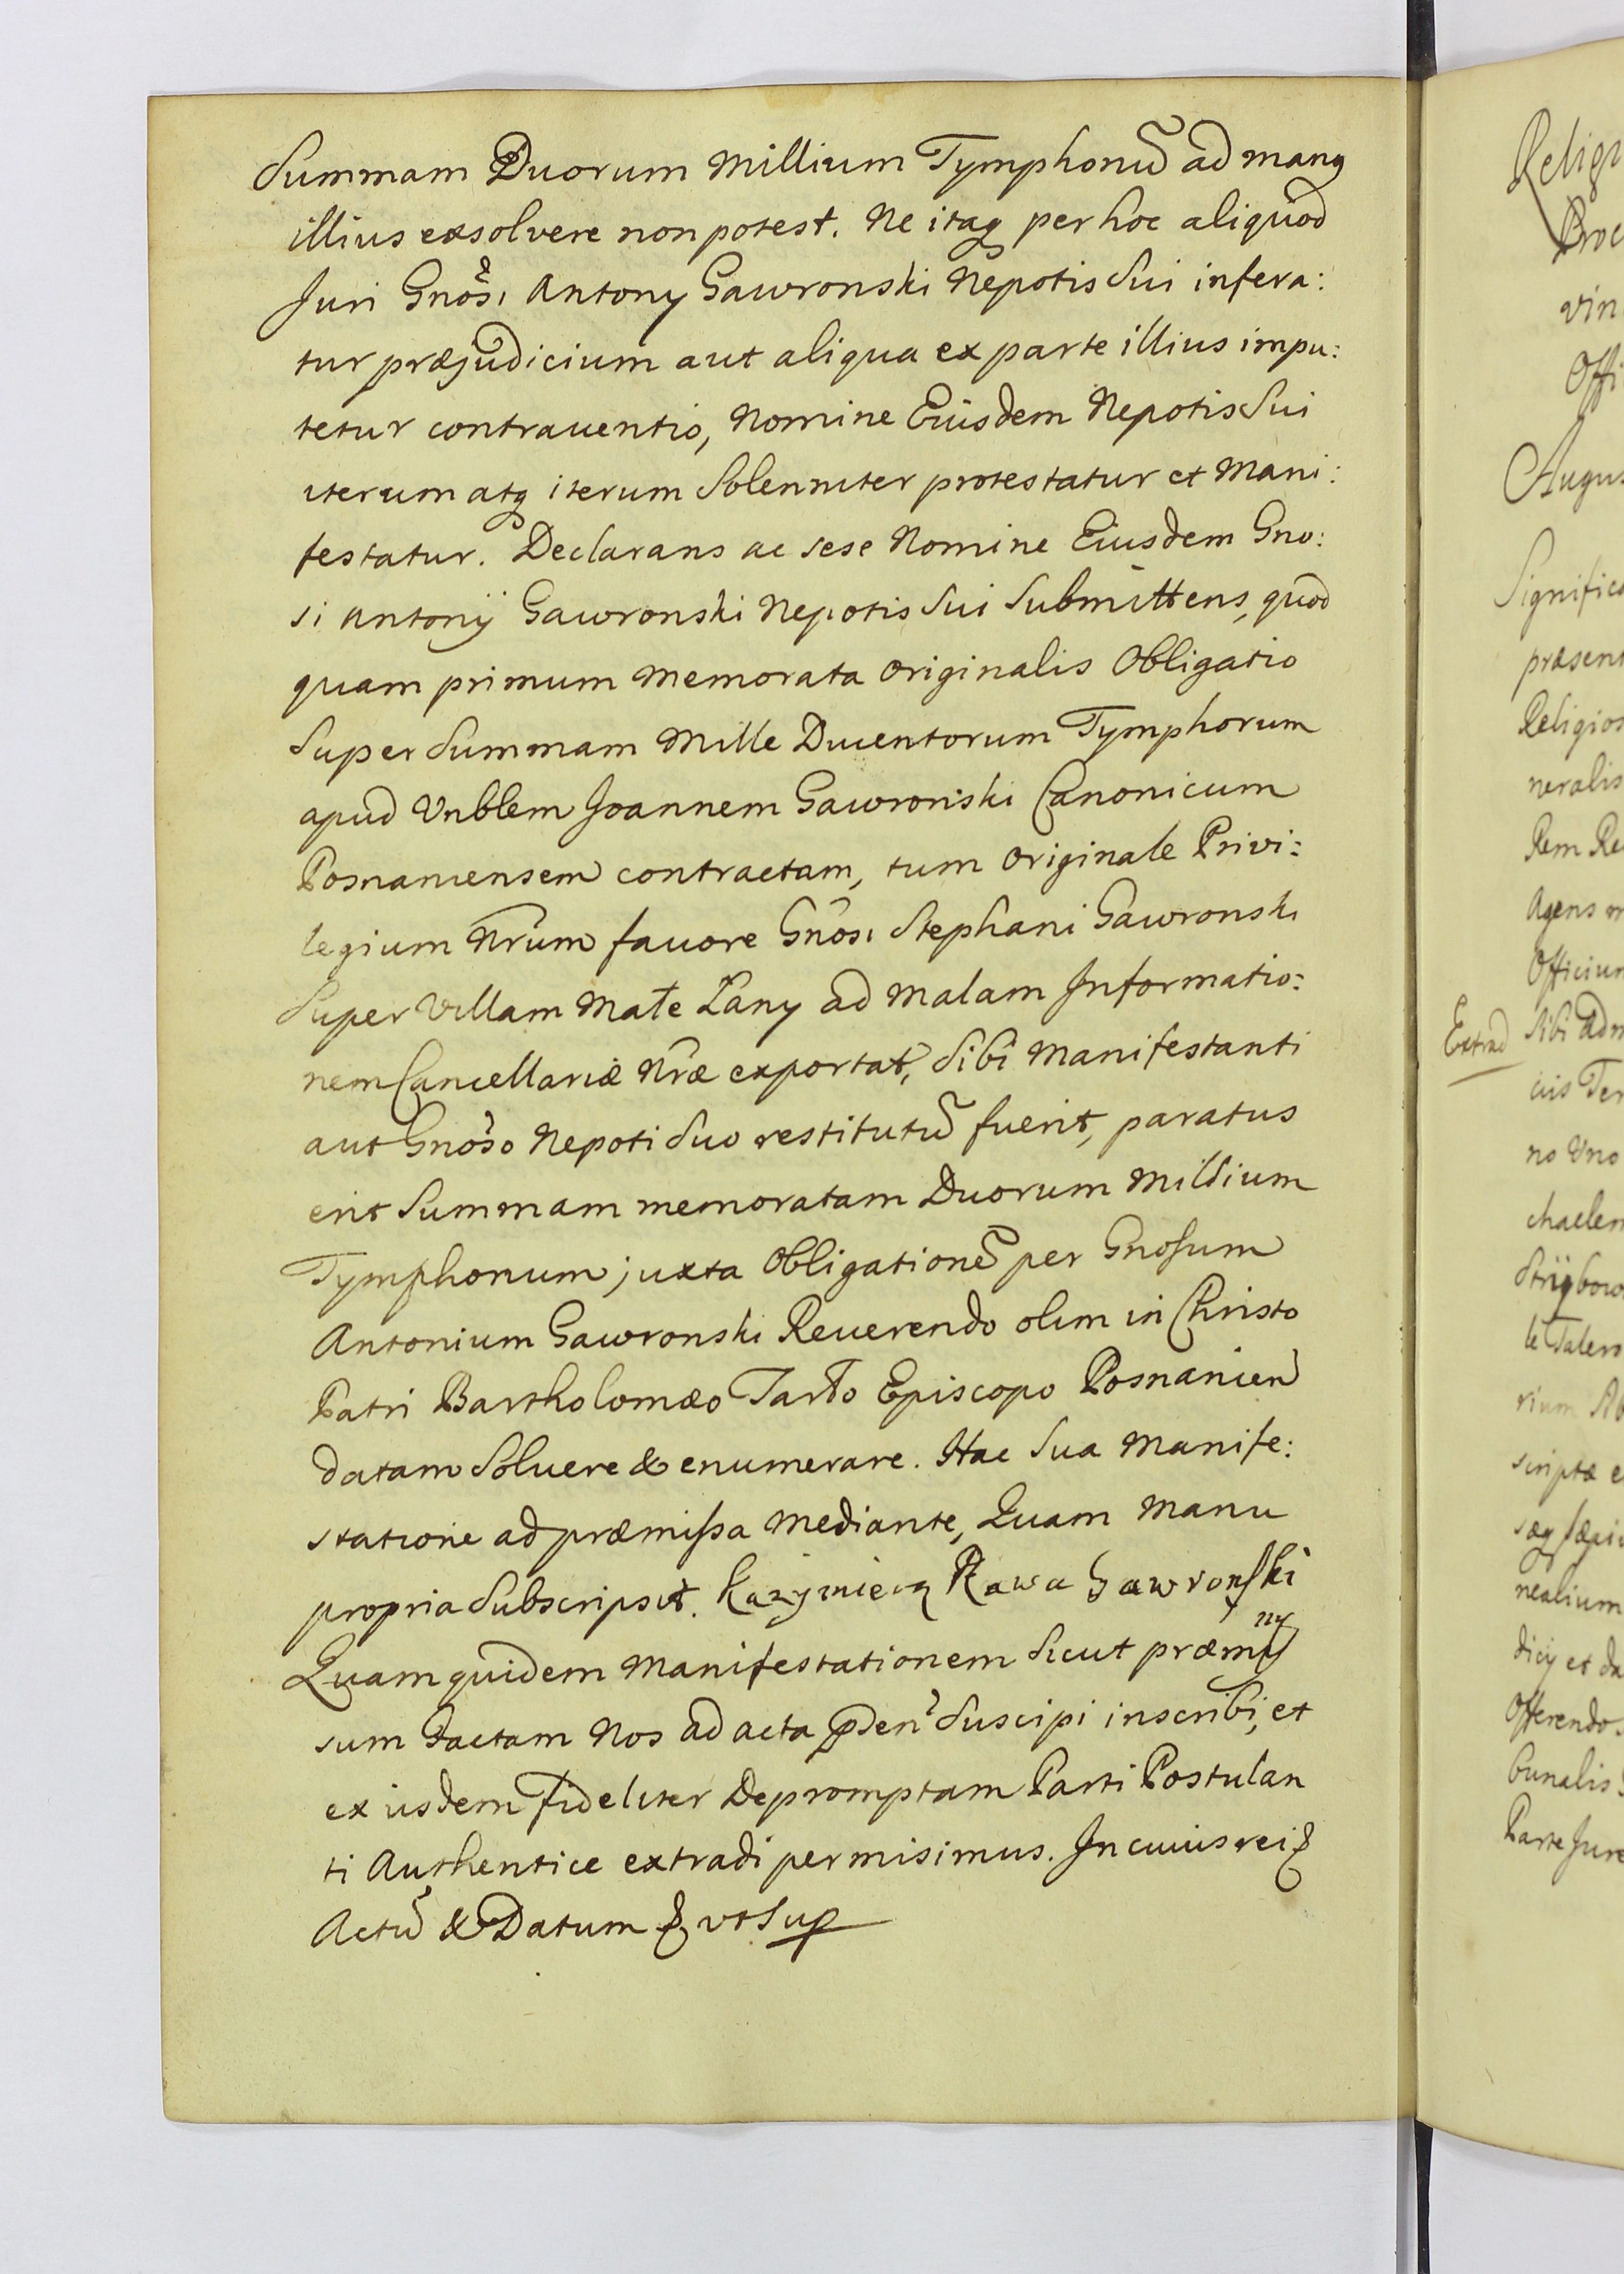 Summam Duorum Millium Tymphonũ ad manꝫ
illius exsolvere non potest. Ne itaqꝫ per hoc aliquod
Juri Gnõsi Antony Gawronski Nepotis Sui infera:
tur præjudicium aut aliqua ex parte illius impu:
tetur contrauentio, Nomine Eiusdem Nepotis Sui
iterum atqꝫ iterum Solenniter protestatur et Mani:
festatur. Declarans ac sese Nomine Eiusdem Gno:
si Antonÿ Gawronski Nepotis Sui Submittens, quod
quam primum Memorata Originalis Obligatio
Super Summam Mille Ducentorum Tymphorum
apud Vnblem Joannem Gawronski Canonicum
Posnaniensem contractam, tum Originale Privi:
legium Nrũm fauore Gnõsi Stephani Gawronski
Super Villam Małe Łany ad Malam Informatio:
nem Cancellariæ Nræ exportat, Sibi Manifestanti
aut Gnõso Nepoti Suo restitutũ fuerit, paratus
erit Summam memoratam Duorum Millium
Tymphonum juxta Obligationẽ per Gnosum
Antonium Gawronski Reuerendo olim in Christo
Patri Bartholomæo Tarło Episcopo Posnanien
datam Soluere & enumerare. Hac Sua Manife:
statione ad præmissa Mediante, Quam Manu
propria Subscripsit. Kazymierz Rawa Gawronski
Quam quidem Manifestationem Sicut præmis
sum Factam Nos ad acta pñden Suscipi inscribi, et
ex iisdem fideliter Depromptam Parti Postulan
ti Authentice extradi permisimus. In cuius rei &
Actũ & Datum & vt Sup
Religi
Proc
vin
Offi
Augus
Significa
præsent
Religios
neralis
Rem Re
Agens
Officium
Extrad
Sibi adm
cuis Ter
no Vno
chaelem
Strÿbow
le Talero
rium
scriptæ e
nealium
dicÿ et da
Offerendo
bunalis
Parte Jure